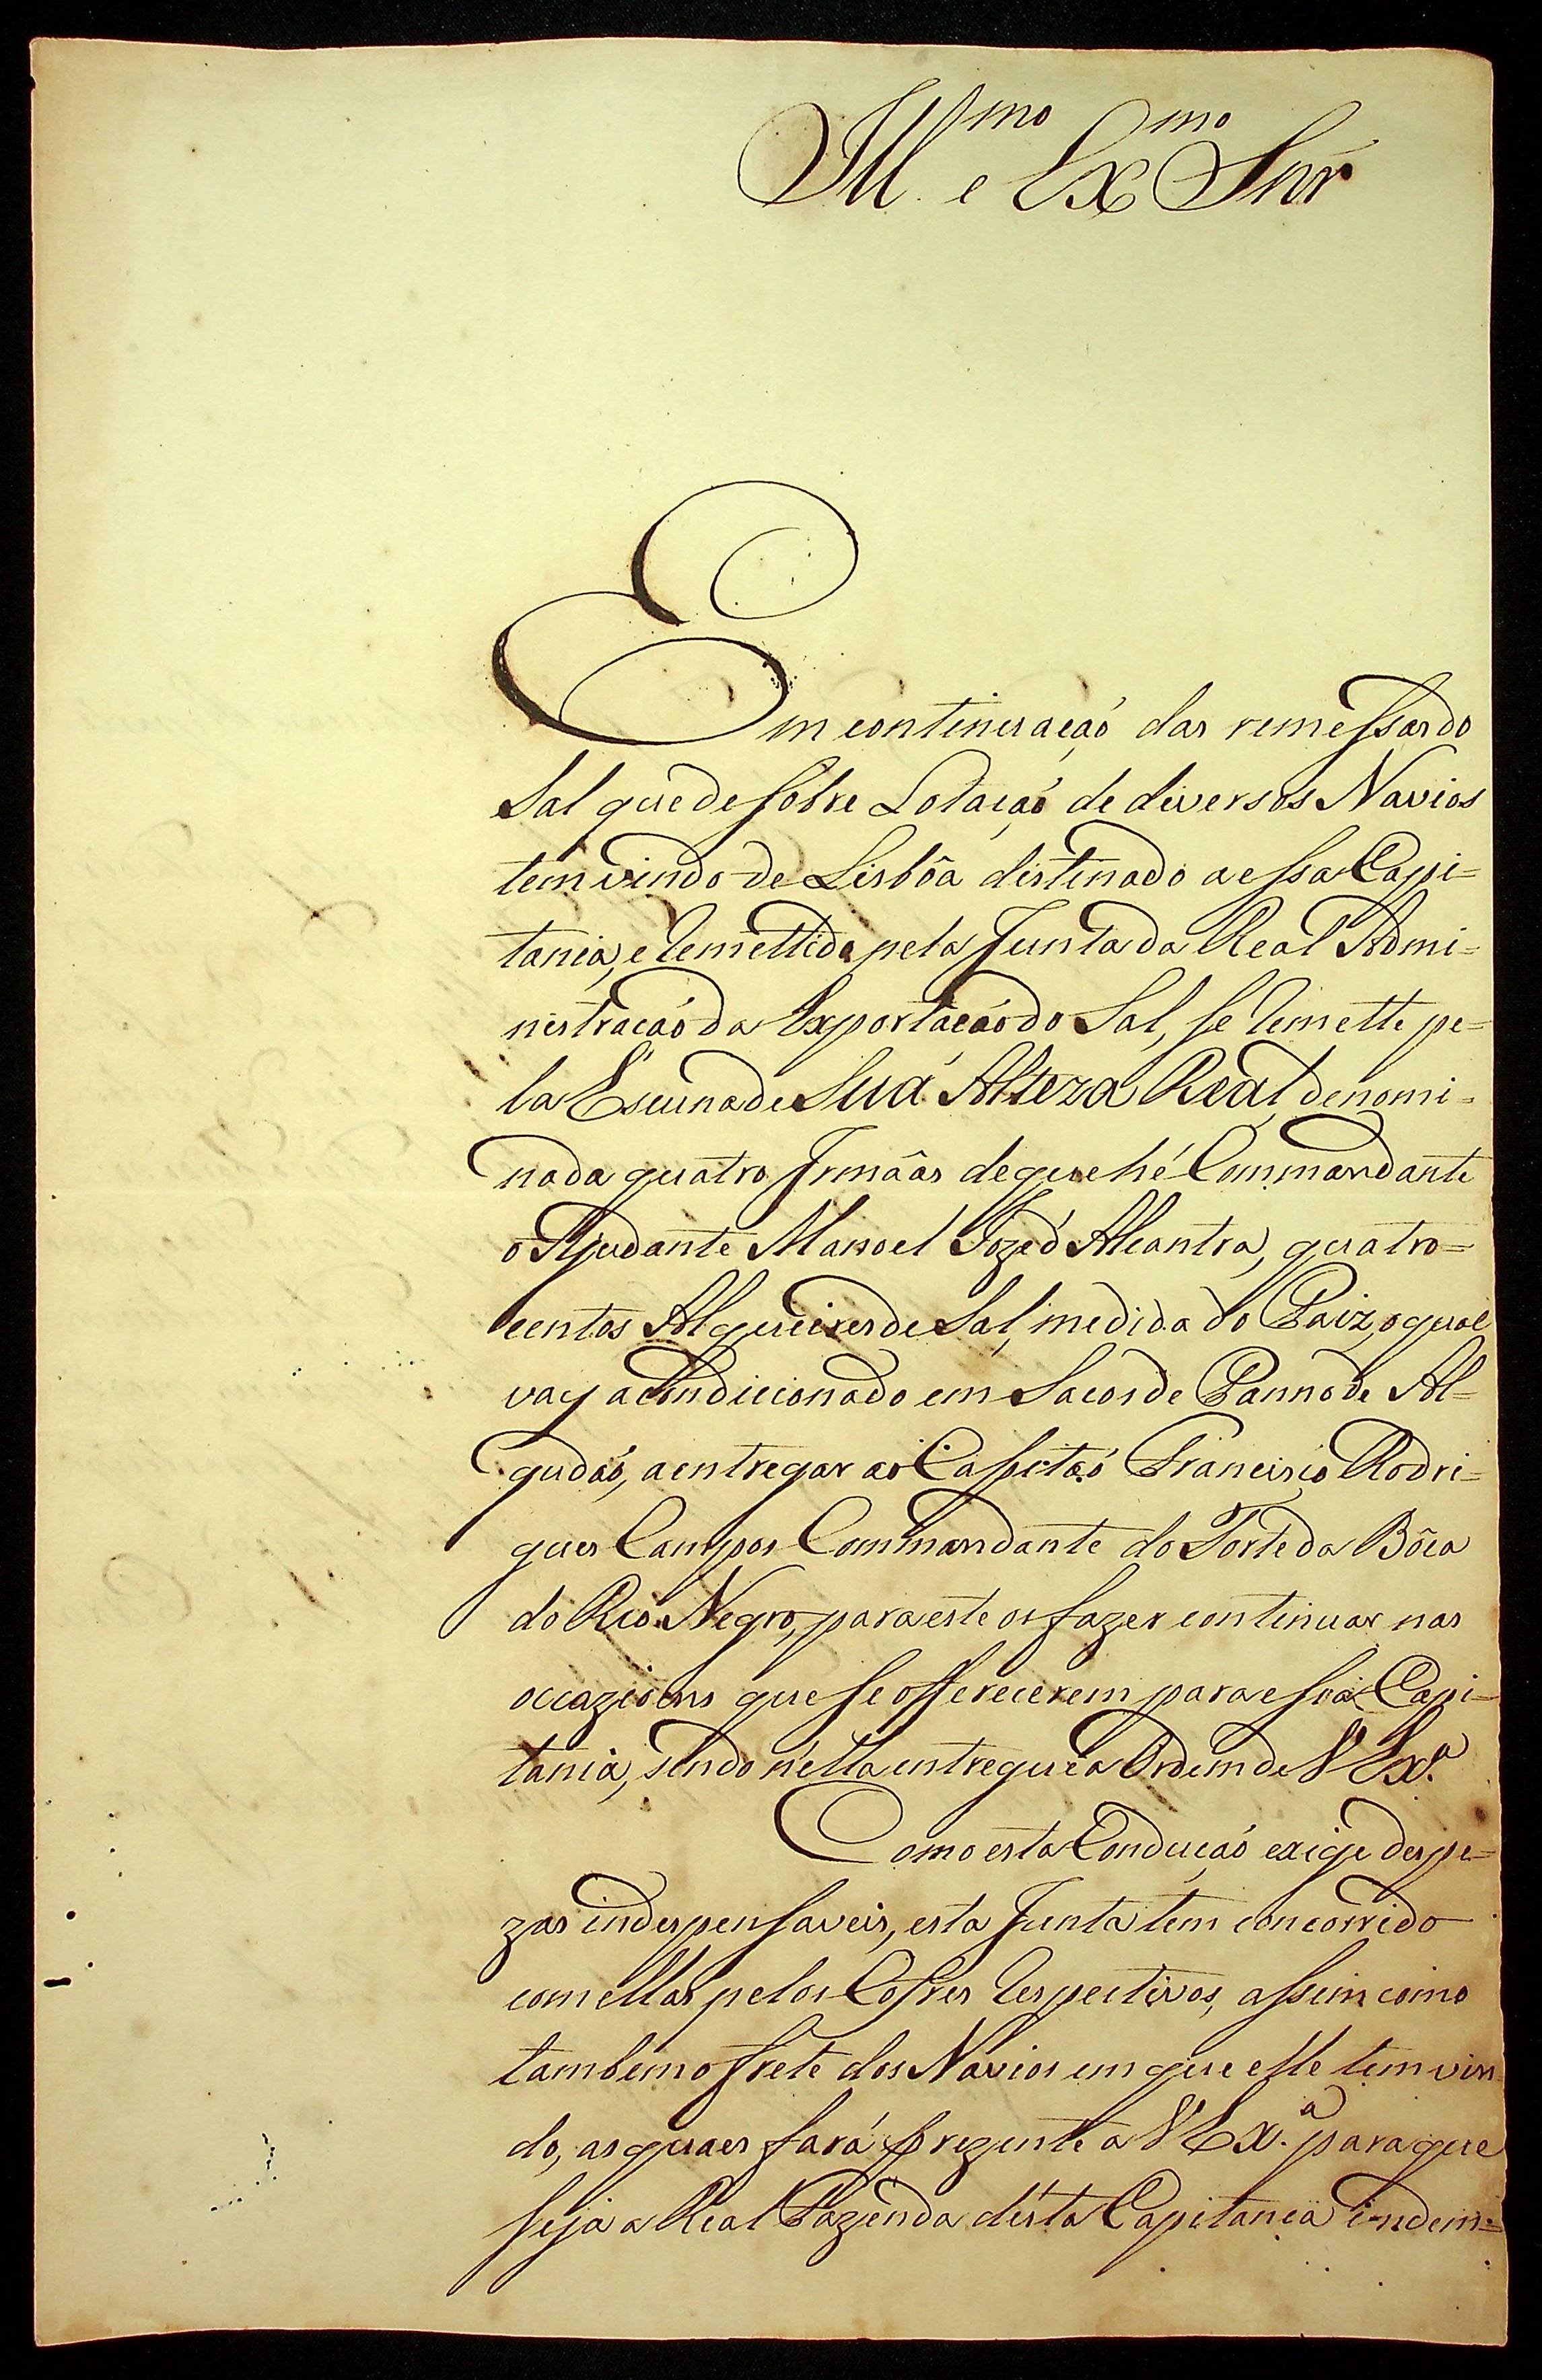 Ill.mo e Ex.mo Snr
Em continuação das remessas do
Sal que de sobre Lotação de diversos Navios
tem vindo de Lisbôa distinado a essa Capi=
tania, e Remettido pela Junta da Real Admi=
nistração da Exportação do Sal, se Remette pe=
la Escuna de Sua Alteza Real, denomi=
nada quatro Irmâas de que hé Commandante
o Ajudante Manoel Jozé d'Alcantra, quatro=
centos Alqueires de Sal, medida do Paiz, o qual
vay acondicionado em Sacos de Panno de Al=
gudaó, a entregar ao Capitaó Francisco Rodri=
gues Campos Commandante do Forte da Bôca
do Rio Negro, para este os fazer continuar nas
occazioens que se offerecerem para essa Capi=
tania, sendo n'ella entregue a Ordem de V Ex.a
Como esta Condução exige despe=
zas indespensaveis, esta Junta tem concorrido
com ellas pelos Cofres Respectivos, assim como
tambem o frete dos Navios em que elle tem vin
do, as quaes fará prezente a V Ex.a para que
seja a Real Fazenda désta Capitania indem=